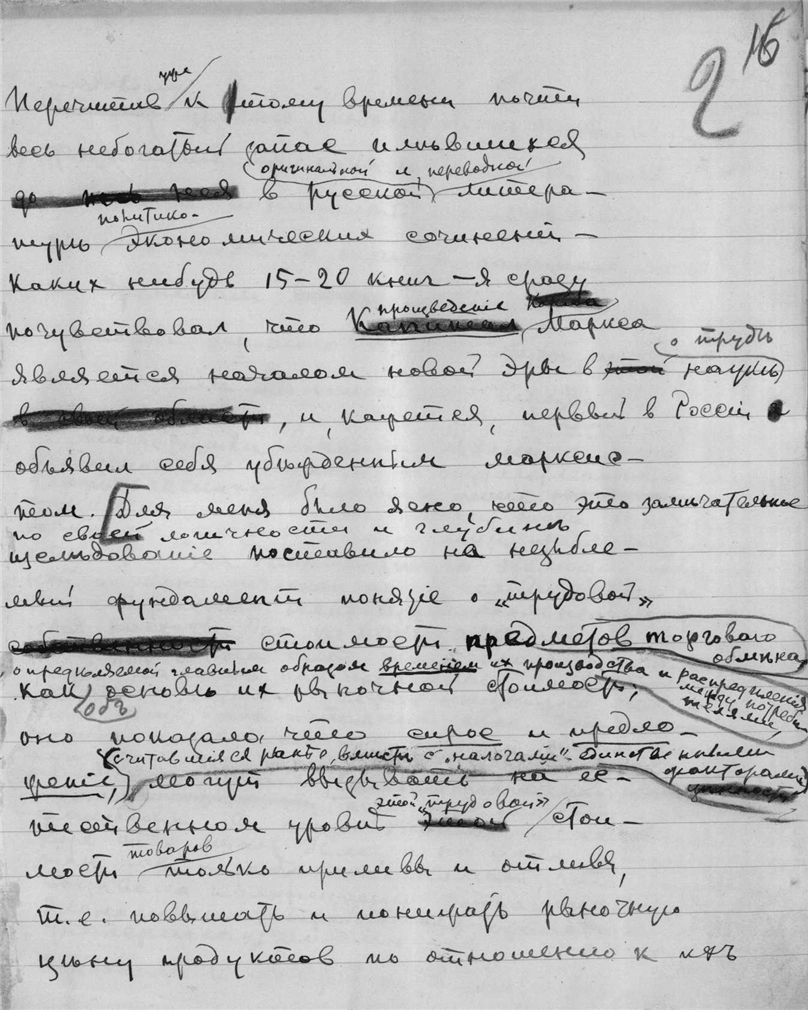 2 16
уже
Перечитав к этому времени почти
весь небогатый запас имевшихся
оригинальной и переводной
в русской литера-
политико-
туры экономических сочинений –
каких нибудь 15–20 книг – я сразу
произведение
почувствовал, что Маркса
о трудѣ
является началом новой эры в наукѣ
, и, кажется, первый в России
объявил себя убежденным маркси-
том. Для меня было ясно, что это замѣчательное
по своей логичности и глубинѣ
изслѣдованіе поставило на незыбле-
мый фундамент понятіе о „трудовой“
стоимости предметов торговаго
обмѣна,
опредѣляемой главным образом временем их производства и распредѣленія
между потреби-
телями,
как основы их рыночной стоимости;
объ
оно показало, что спрос и предло-
(считавшіяся ранѣе, вмѣстѣ с „налогами“ единственными
факторами
жение, могут вызывать на ее-
этой „трудовой“
тественном уровнѣ стои-
товаров
мости только приливы и отливы,
т.е. повышать и понижать рыночную
цѣну продуктов по отношению к ихъ